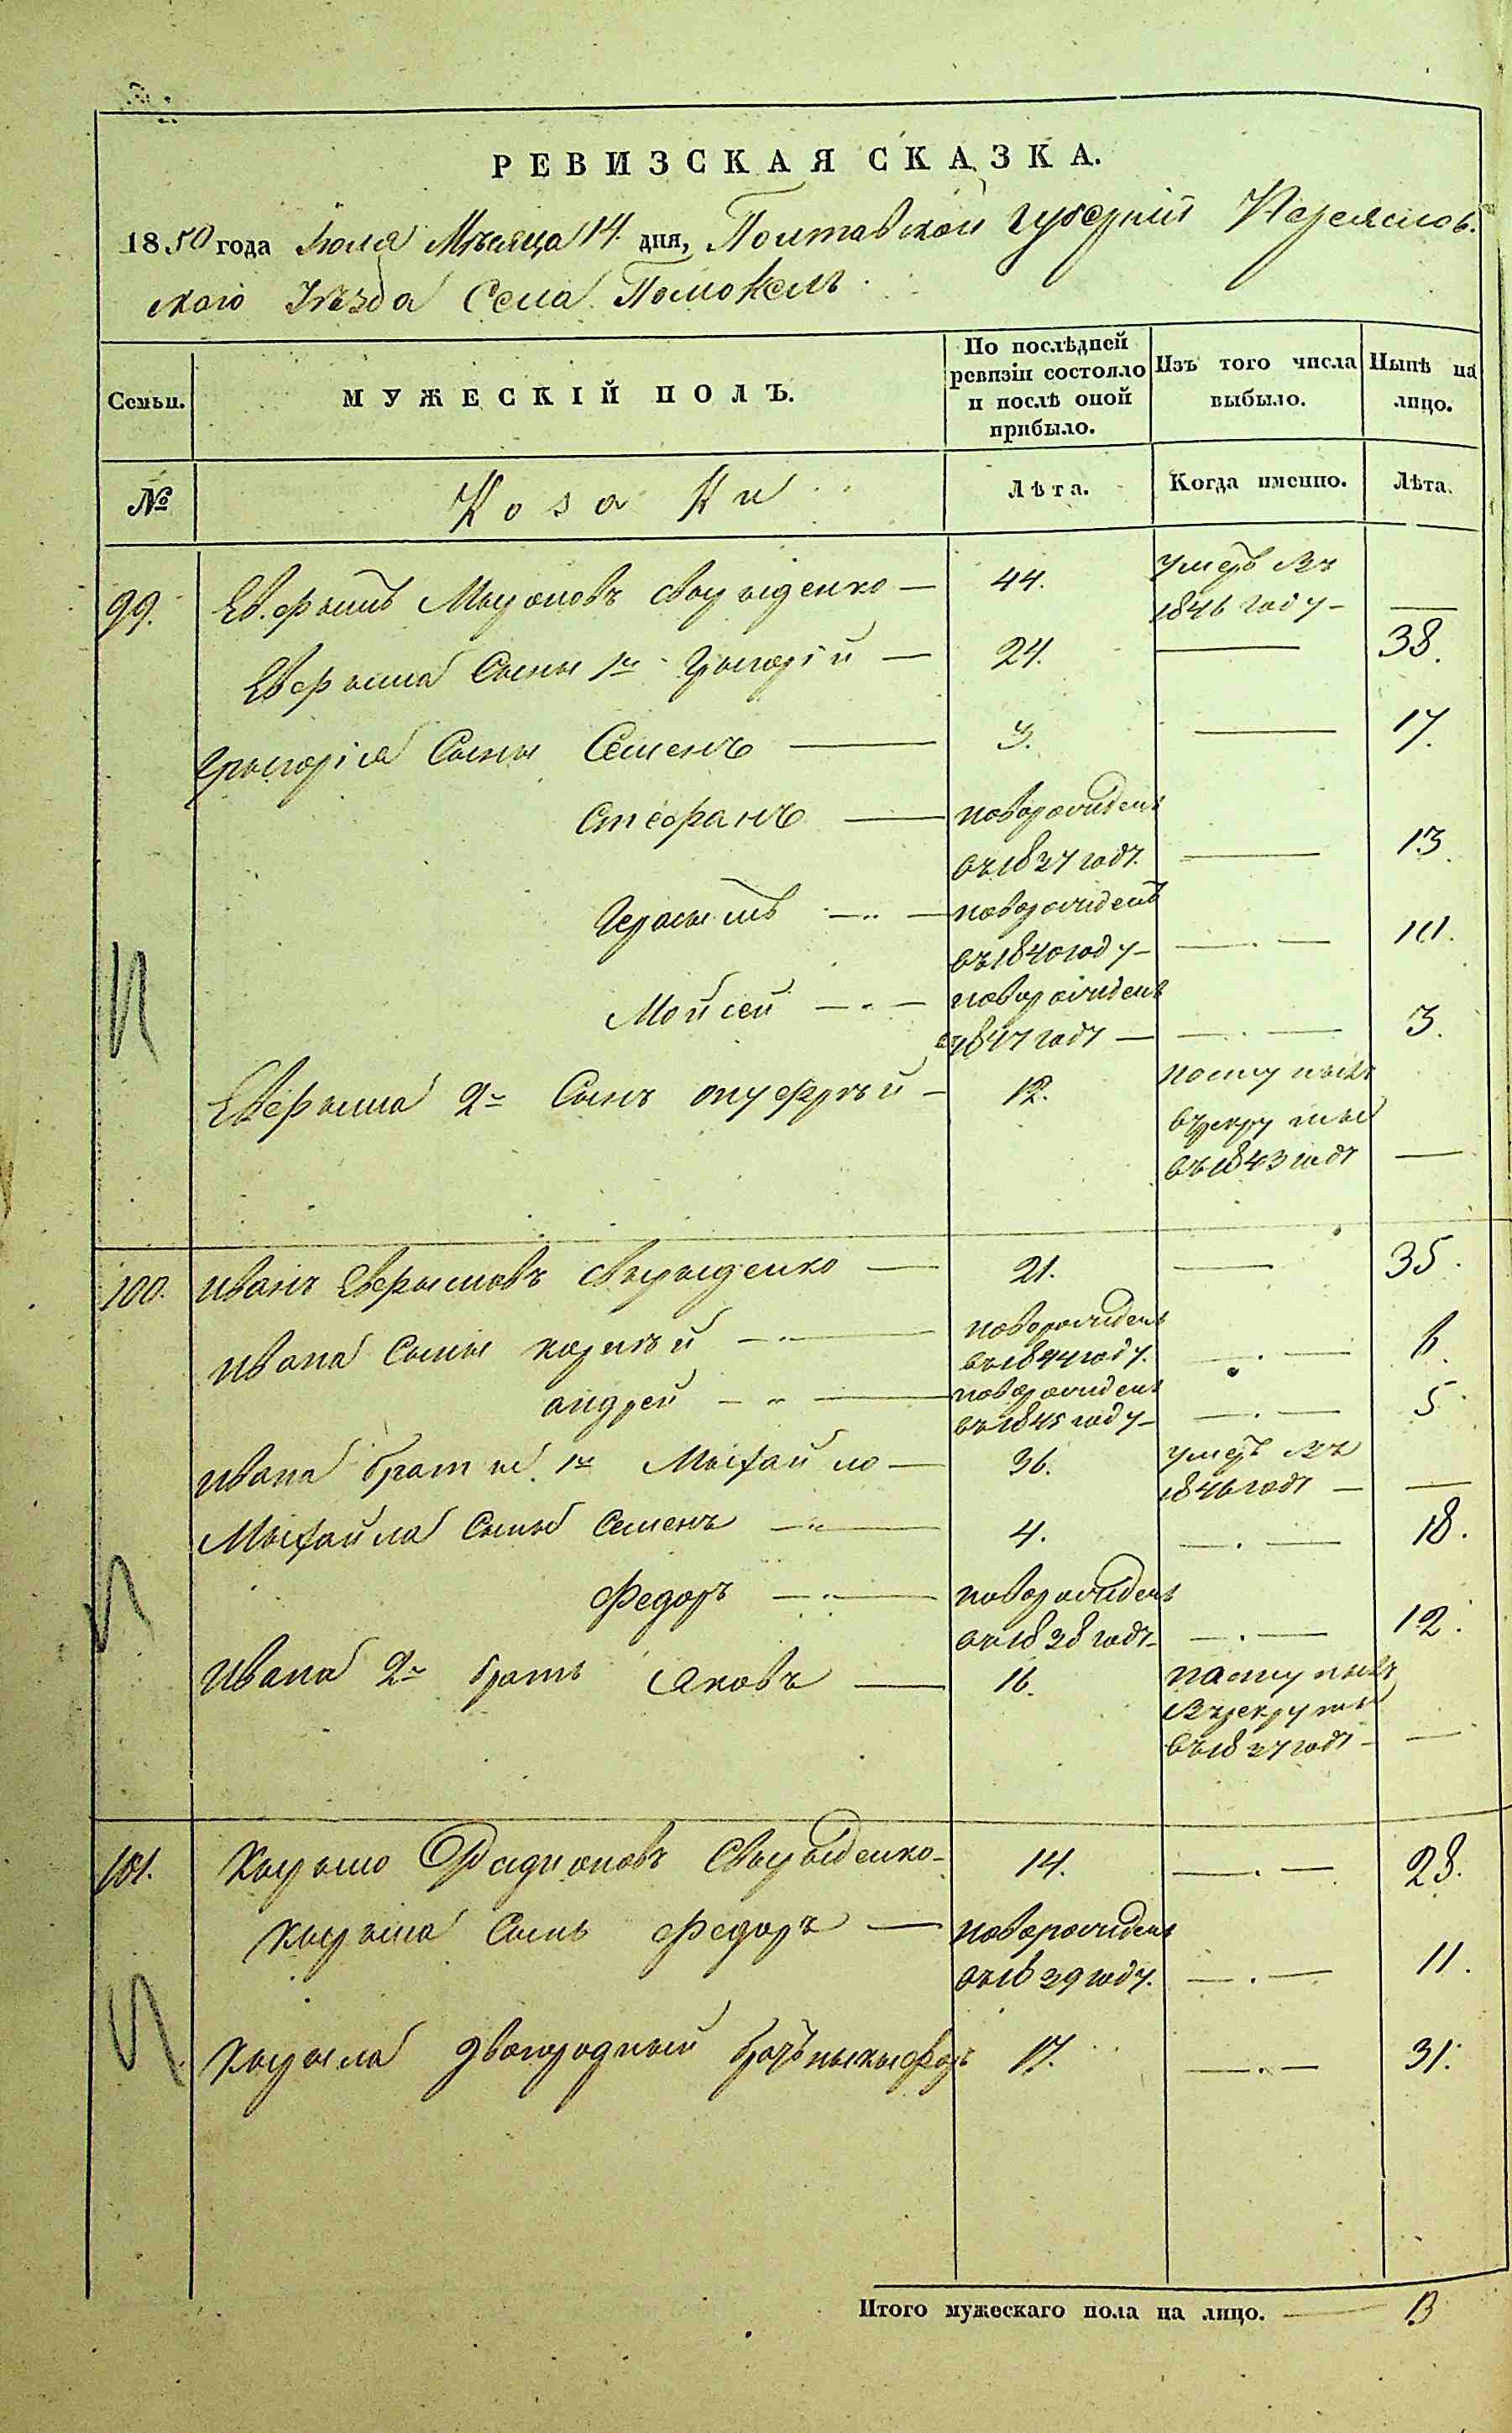 РЕВИЗСКАЯ СКАЗКА.
1850 года Июля Мѣсяца 14. дня, Полтавской Губерніи Переяслов-
скаго Уѣзда Села Помоклъ
Семьи.
МУЖЕСКІЙ ПОЛЪ.
По послѣдней ревизіи состояло и послѣ оной прибыло.
Изъ того числа выбыло.
Нынѣ на лицо.
№
Козаки
Лѣта.
Когда именно.
Лѣта.
99. Ефымъ Мыроновъ Свырыденко — 44. умеръ въ
1846 году —
Ефыма Сыны 1й Грыгорій — 24. — 38.
Грыгорія Сыны Семенъ — 3. — 17.
Стефанъ — новорожденъ
въ 1837 году. — 13.
Герасымъ — новорожденъ
въ 1840 году — 10.
Мойсей — новорожденъ
въ 1847 году — 3.
Ефыма 2й Сынъ Онуфрѣй — 12. поступилъ
въ рекруты
въ 1843 году —
100. Иванъ Ефымовъ Свырыденко — 21. — 35.
Ивана Сыны Корнѣй — новорожденъ
въ 1844 году. — 6.
Андрей — новорожденъ
въ 1845 году — 5
Ивана братья 1й Мыхайло — 36. умеръ въ
1846 году —
Мыхайла Сыны Семенъ — 4. — 18.
Федоръ — новорожденъ
въ 1838 году — 12.
Ивана 2й братъ Яковъ — 16. поступилъ
въ рекруты
въ 1837 году —
101. Кырыло Радионовъ Свырыденко — 14. — 28.
Кырыла Сынъ Федоръ — новорожденъ
въ 1839 году. — 11.
Кырыла двоюродный братъ Ныкыфоръ 17. — 31.
Итого мужескаго пола на лицо. — 13